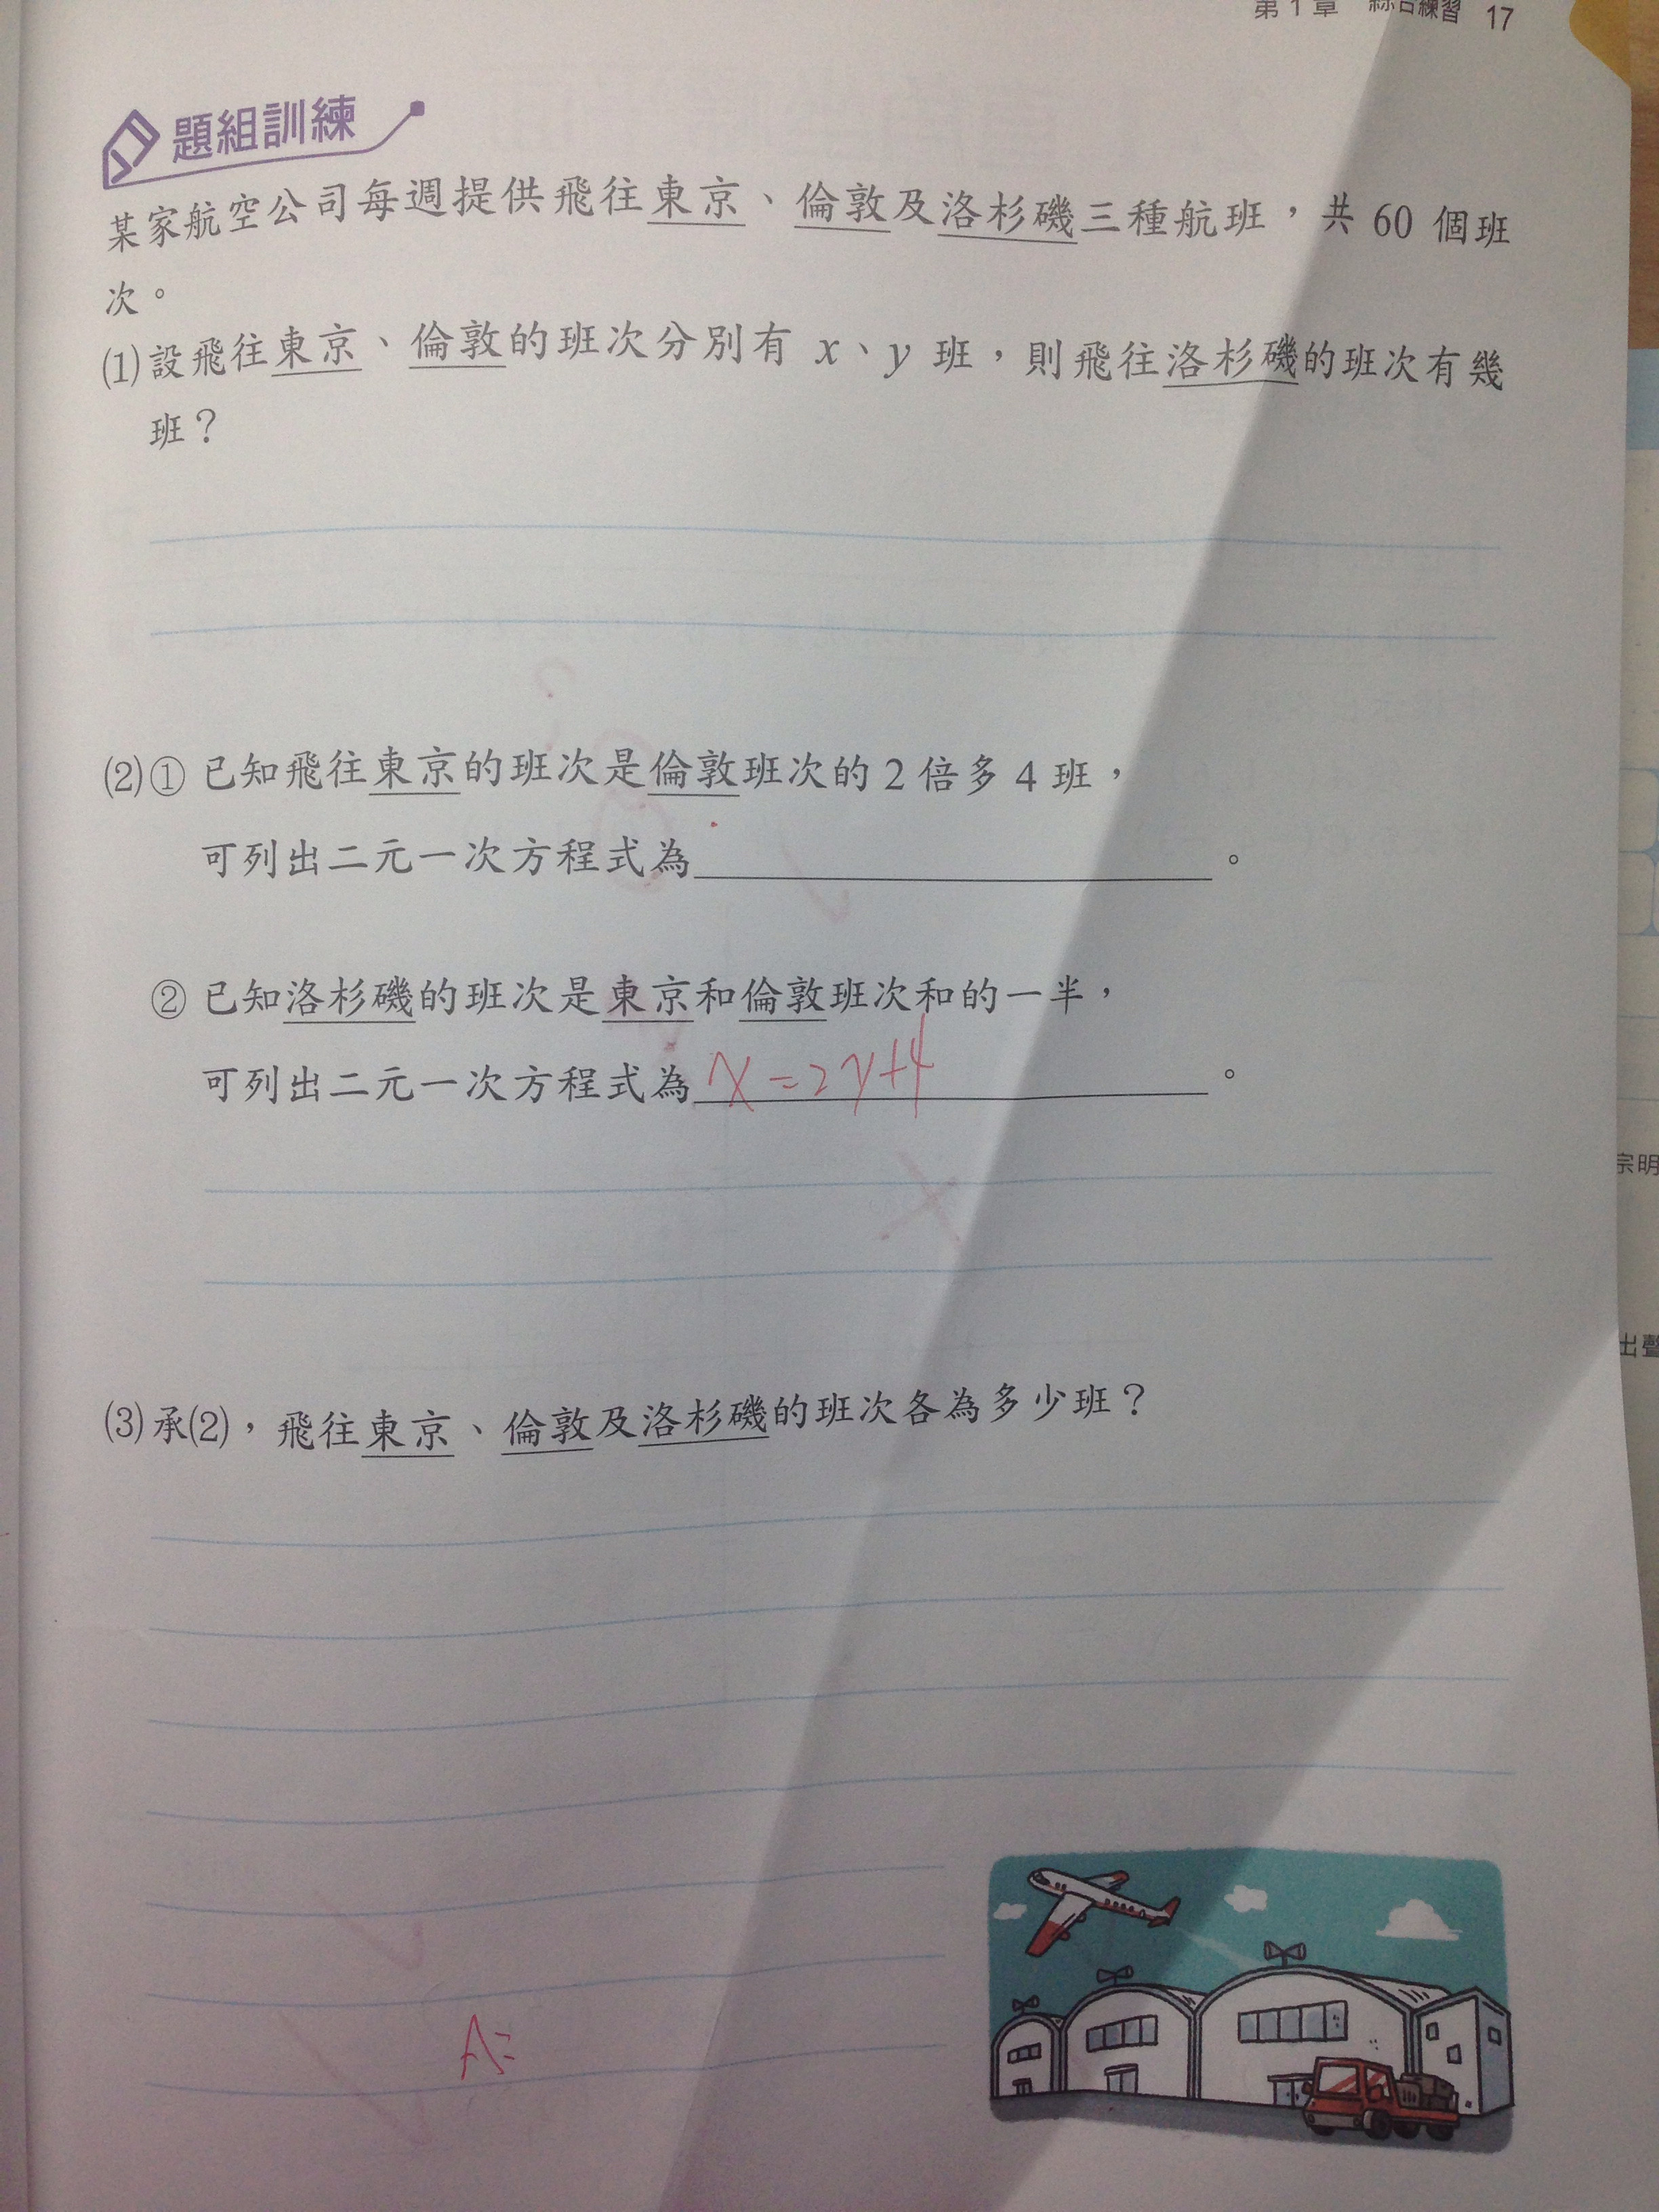 第1章 綜合練習 17
題組訓練
某家航空公司每週提供飛往東京、倫敦及洛杉磯三種航班，共 60 個班
次。
(1)設飛往東京、倫敦的班次分別有 x、y 班，則飛往洛杉磯的班次有幾
班？
(2)① 已知飛往東京的班次是倫敦班次的 2 倍多 4 班，
可列出二元一次方程式為 。
② 已知洛杉磯的班次是東京和倫敦班次和的一半，
可列出二元一次方程式為 x=2y+4 。
宗明
出聲
(3)承(2)，飛往東京、倫敦及洛杉磯的班次各為多少班？
A=